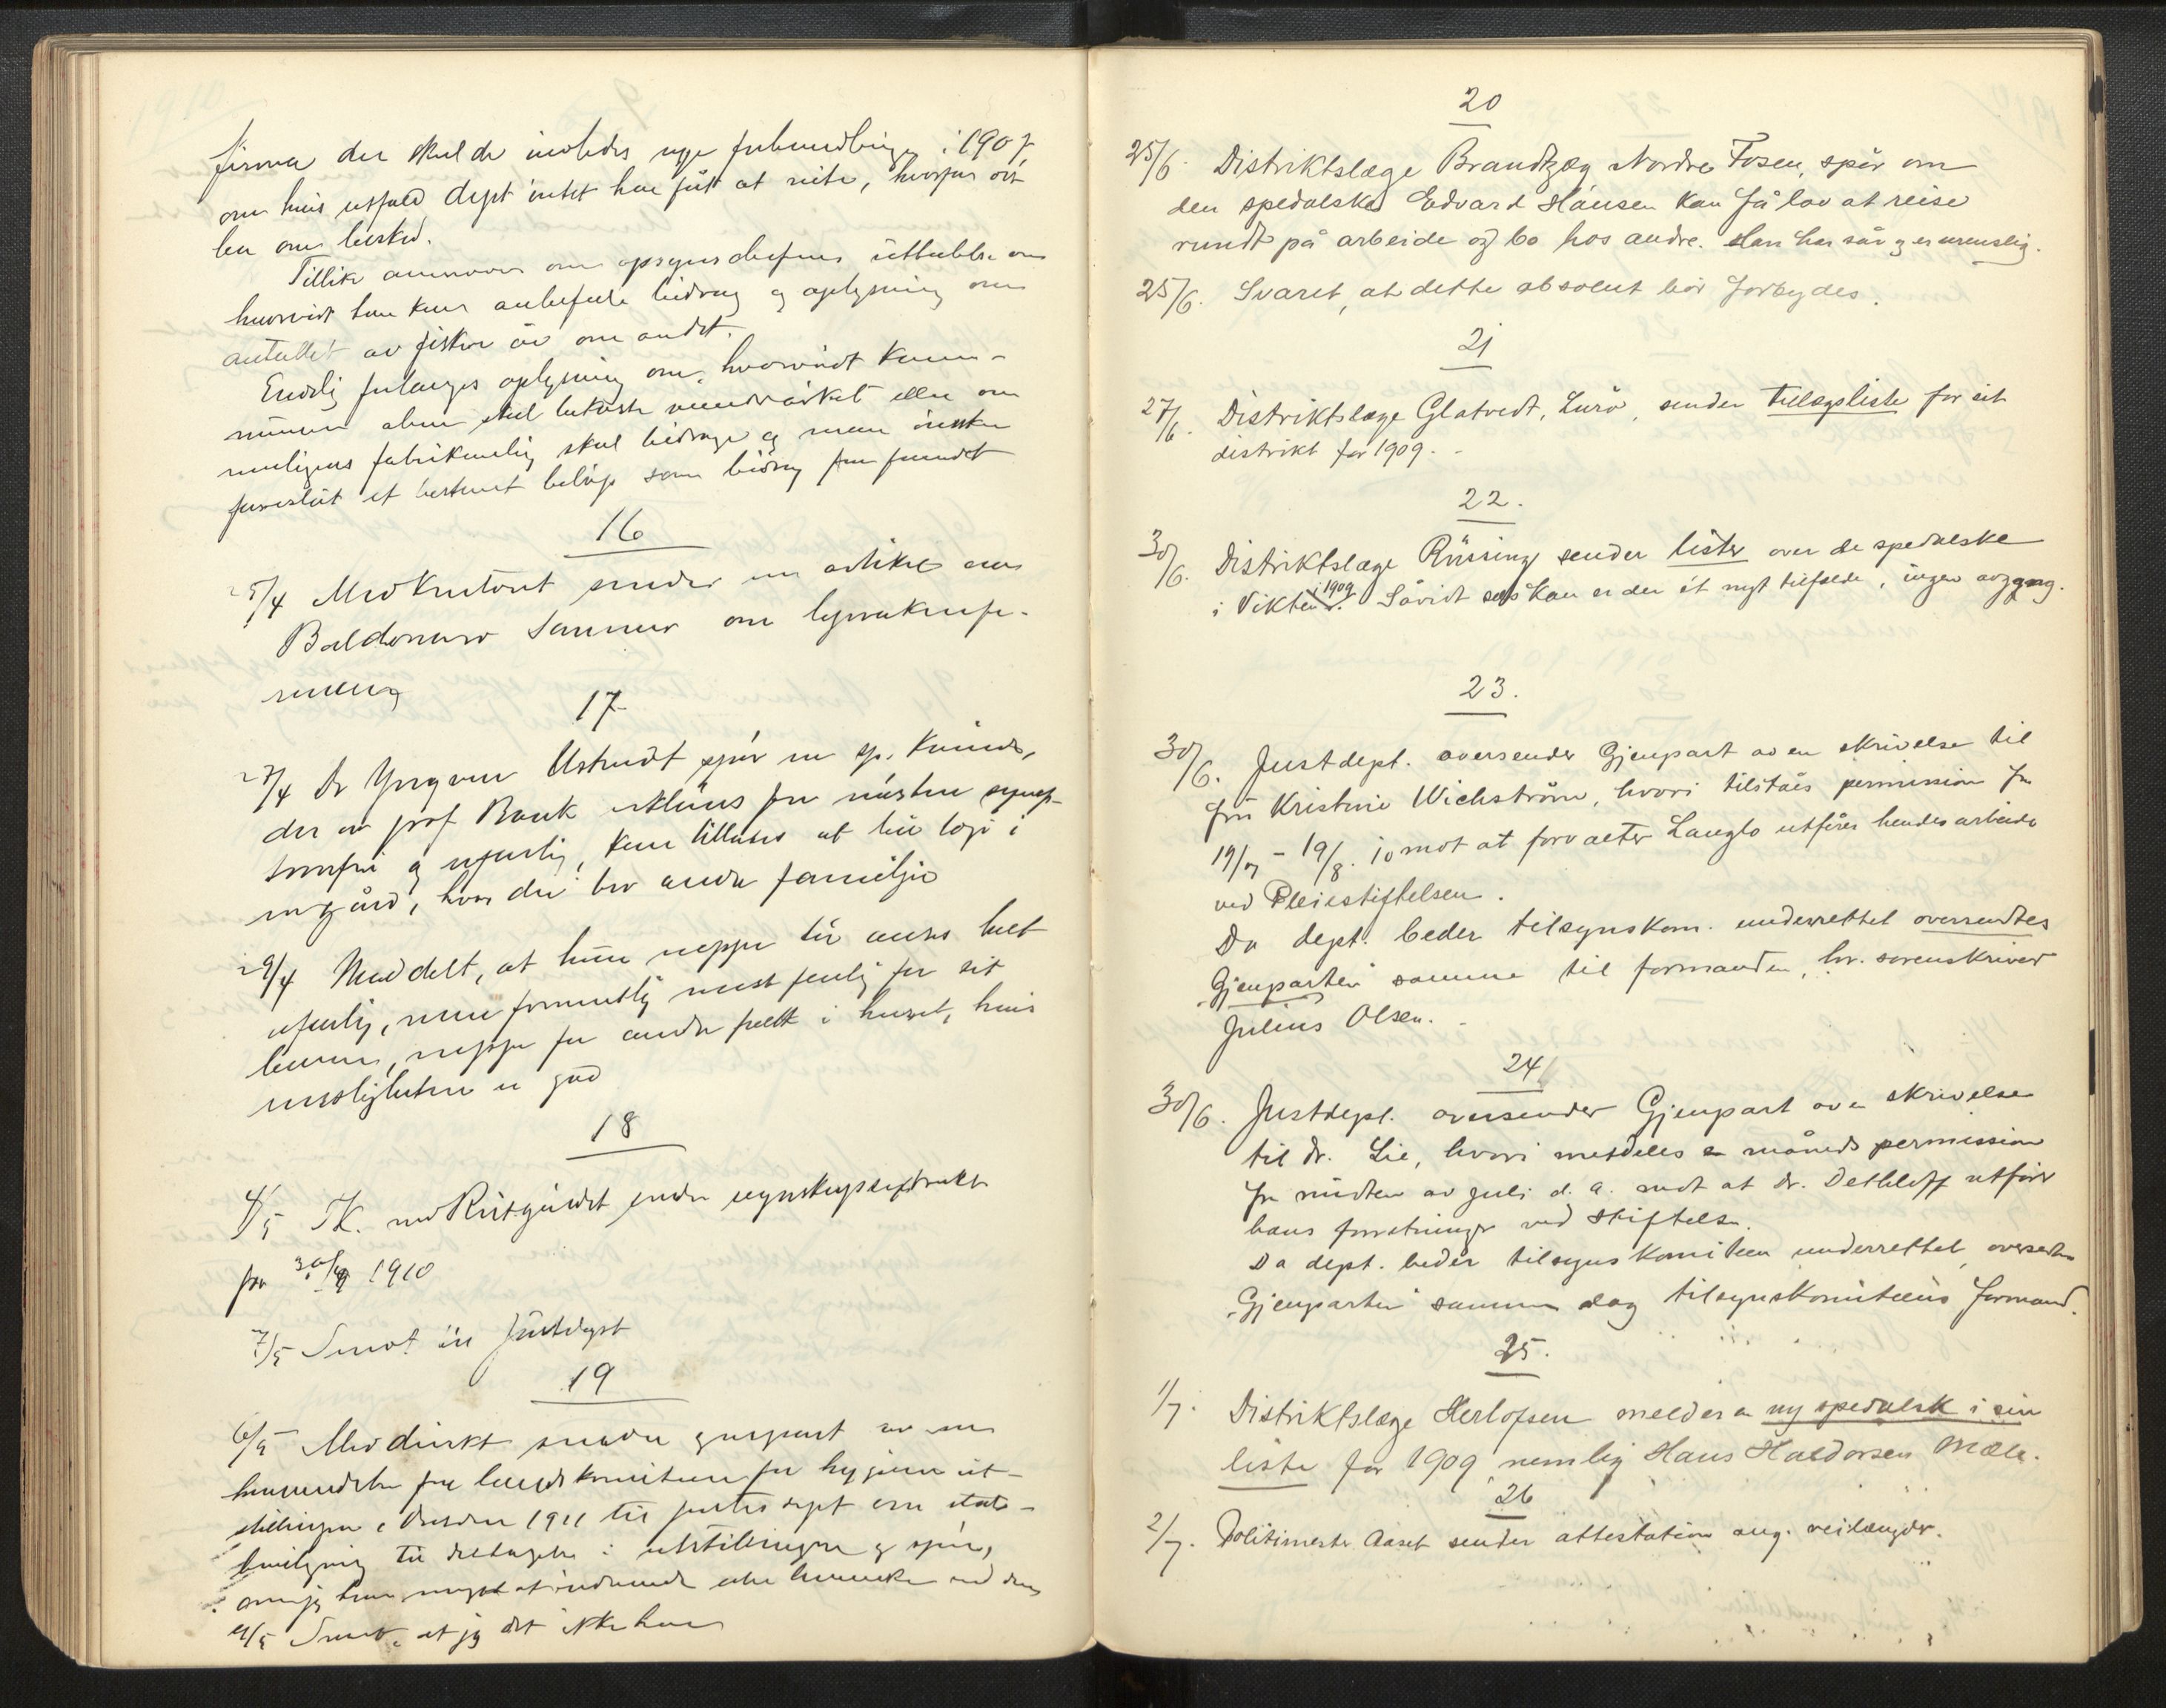 firma der skulde indledes nye forhandlinger i 1907,
om hvis utfald dept intet har fått at vite, hvorfor det
ber om besked.
Tillike anmodes om opsynschefens uttalelse om
hvorvidt han kan anbefale bidrag og oplysning om
antallet av fiskere
Endelig forlanges oplysning om, hvorvidt kom-
munen alene skal bekoste vandverket eller om
muligens fabrikanlæg skal bidrage og man ønsker
foreslåt et bestemt beløp som bidrag fra fondet
16
25/4 Medkontoret sender en artikel av
Baldomero Sommer om leprakonfe-
rencen
17
27/4 Dr Yngvar Ustvedt spør om sp. kvinde,
der av prof Bank erklæres for næsten symp-
tomfri og ufarlig, kan tillates at bli boende i
en gård, hvor der bor andre familjer
29/4 Meddelt, at hun neppe bør anses helt
ufarlig, men formentlig mest farlig for sit
barn, neppe for andre folk i huset, hvis
rensligheten er god
18
4/5 TK. ved Reitgjerdet sender regnskapsextrakt
for 1910
7/5 Sendt til Justdept
19
6/5 Meddirekt sender gjenpart av en
henvendelse fra landskomiteen for hygiene ut-
stillingen i Dresden 1911 til Justisdept om stats-
bevilgning til deltagelse i utstillingen og spør,
om jeg har noget at indvende eller bemerke ved den
9/5 Svaret, at jeg det ikke har
20
25/6. Distriktslæge Brandtzæg Nordre Fosen, spør om
den spedalske Edvard Hansen kan få lov at reise
rundt på arbeide og bo hos andre. Han har sår og er urenslig.
25/6. Svaret, at dette absolut bør forbydes.
21
27/6. Distriktslæge Glatvedt, Lurø, sender tillægsliste for sit
distrikt for 1909.
22.
30/6. Distriktslæge Rüssing sender lister over de spedalske
i Vikten i 1909. Såvidt sees kan er der et nyt tilfælde, ingen avgang.
23.
30/6. Justdept. oversender Gjenpart av en skrivelse til
frk Kristine Wichstrøm, hvori tilståes permission fra
19/7 - 19/8. 10 mot at forvalter Langlo utfører hendes arbeide
ved Pleiestiftelsen.
Da dept. beder tilsynskom. underrettet oversendtes
Gjenparten samme til formanden, hr. sorenskriver
Julius Olsen.
24
30/6. Justdept. oversender Gjenpart av en skrivelse
til dr. Lie, hvori meddeles en måneds permission
fra midten av juli d. a. mot at dr. Dethloff utfører
hans forretninger ved Stiftelsen.
Da dept. beder tilsynskomiteen underrettet, oversendtes
Gjenparten samme dag tilsynskomiteens formand.
25.
1/7. Distriktslæge Herlofsen melder en ny spedalsk i sin
liste for 1909 nemlig Hans Haldorsen Mæle.
26
2/7. Politimester Aaset sender attestation ang. veilængder.